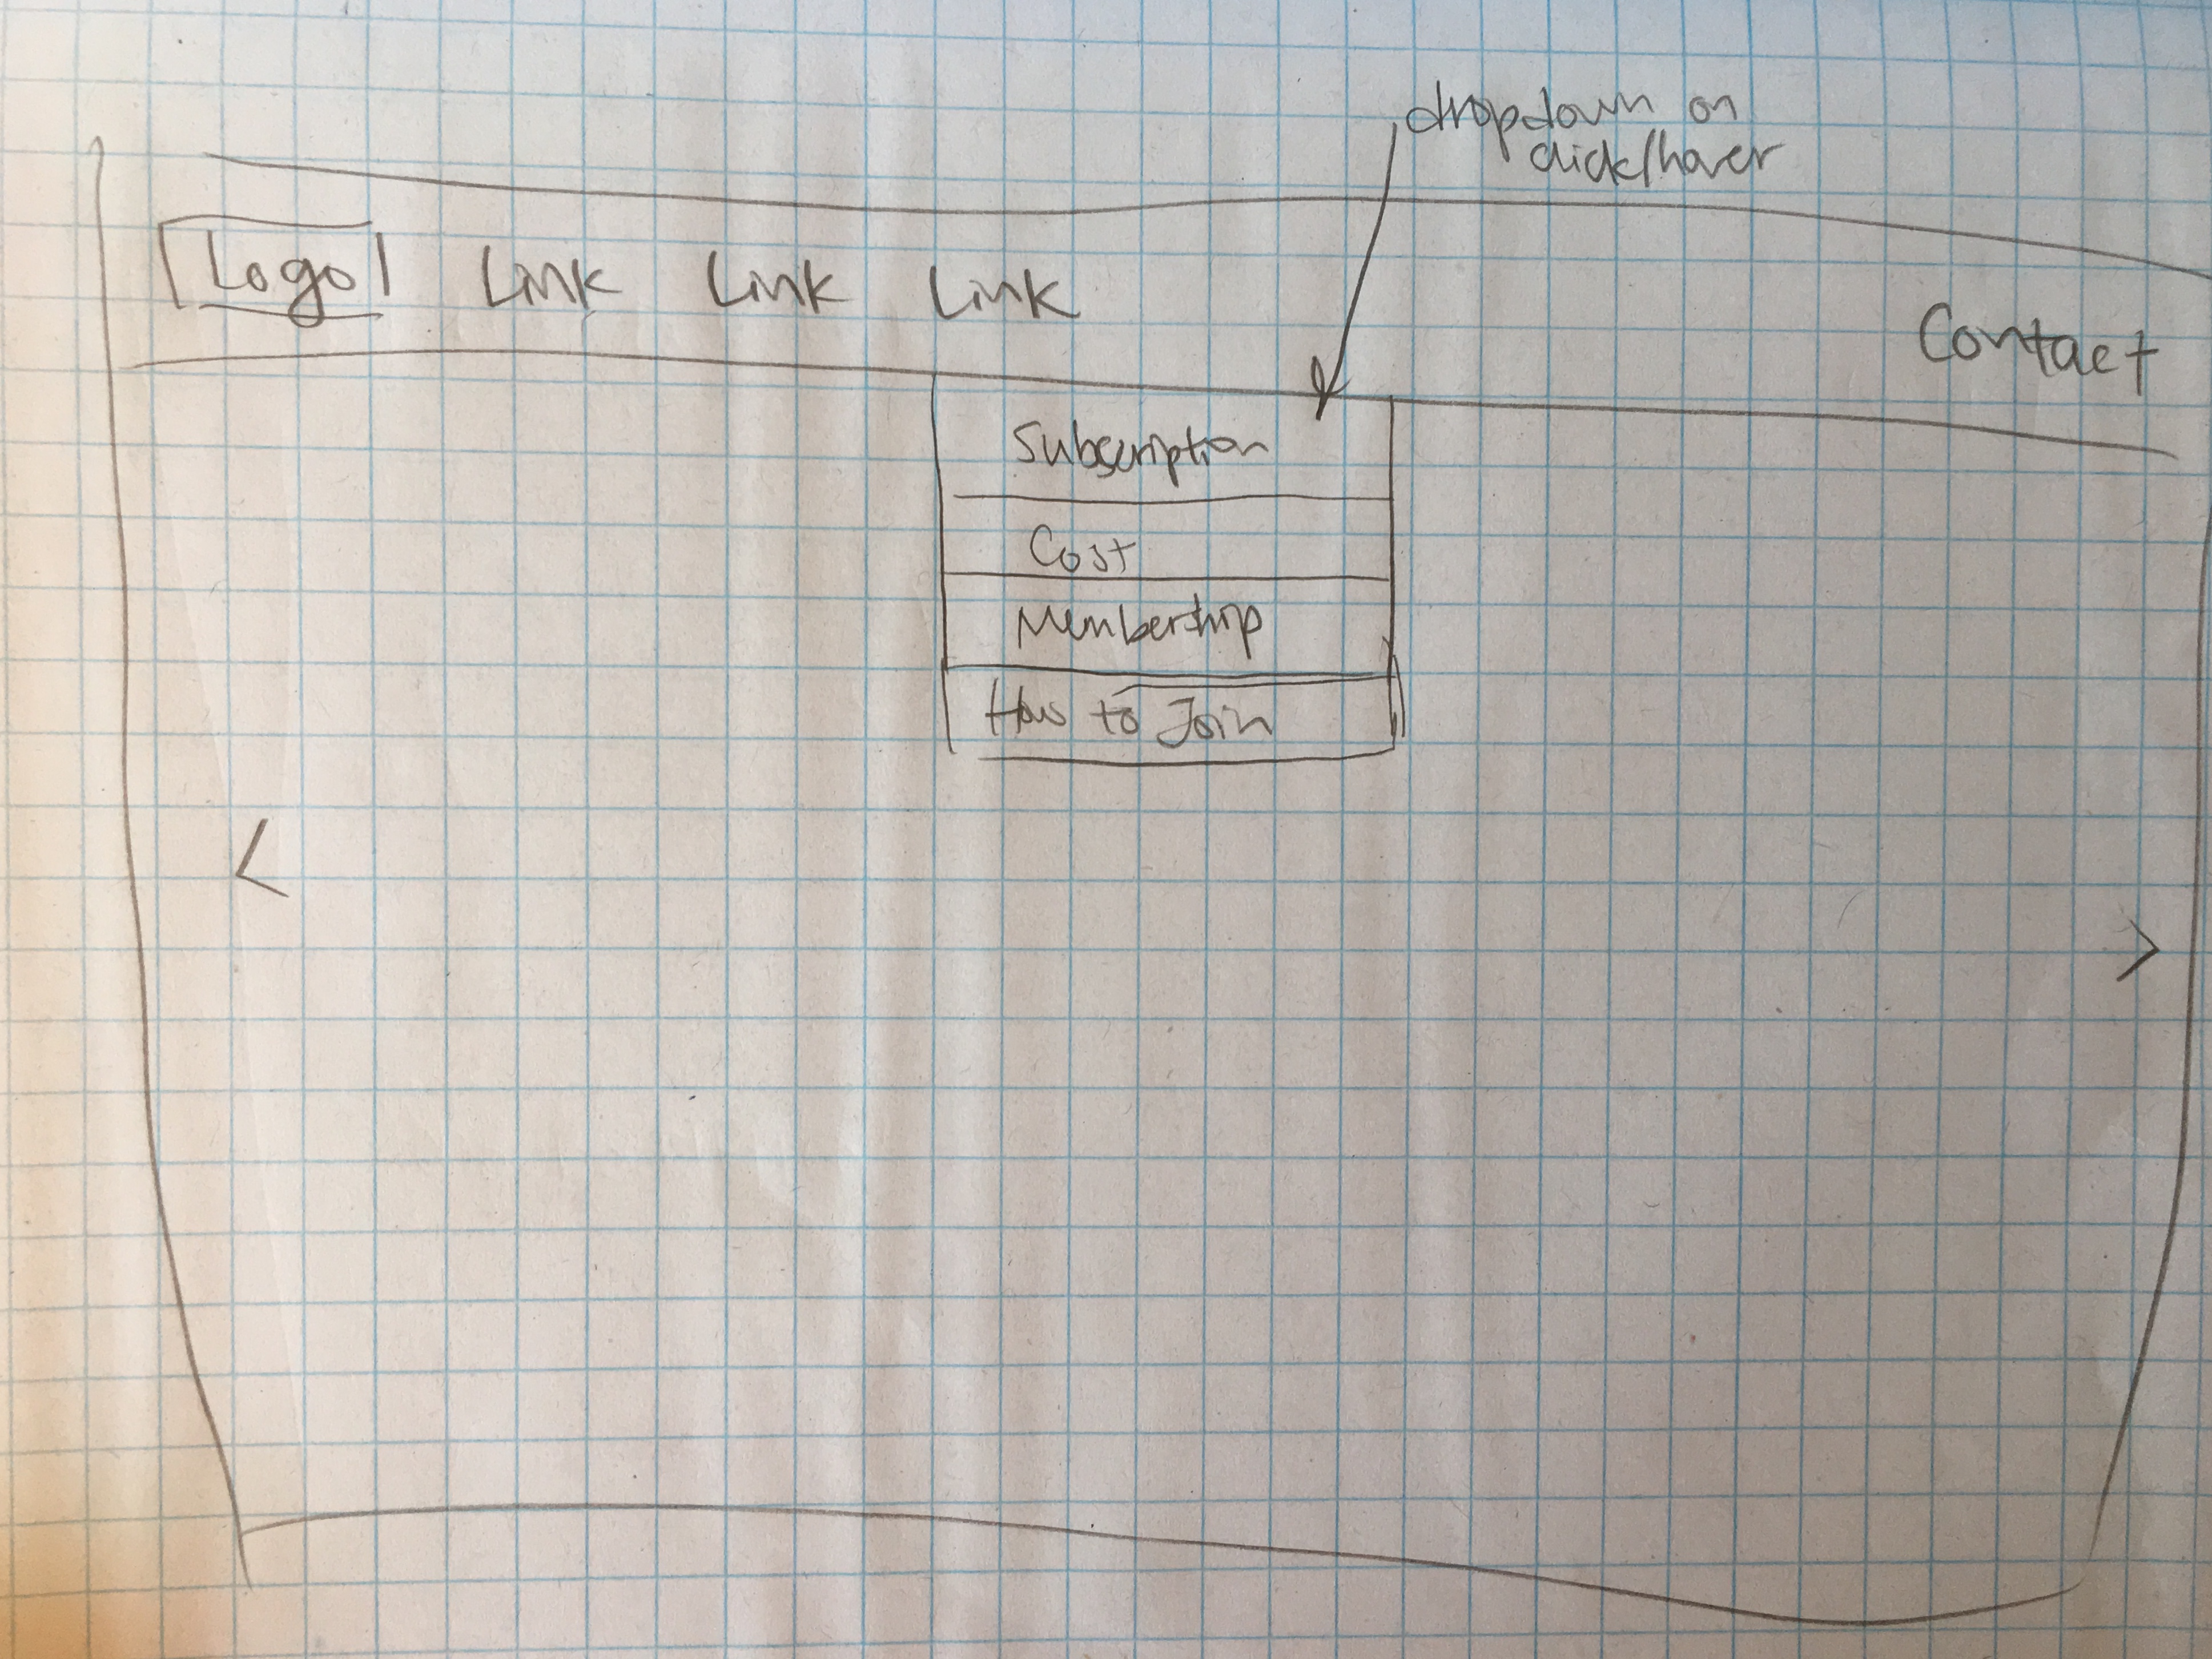 dropdown on
click/hover
Logo Link Link Link Contact
Subscription
Cost
Membership
How to Join
< >